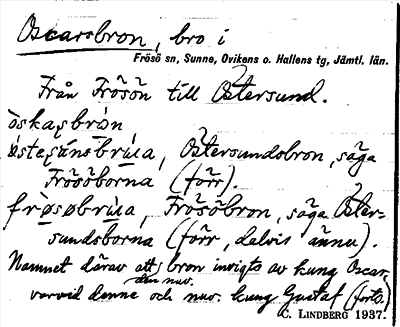 Oscarsbron, bro i
Frösö sn, Sunne, Ovikens o. Hallens tg, Jämtl. län.
Från Frösön till Östersund.
òskaʂbrón
ö̀steʂánsbrúa, Östersundsbron, säga
Frösöborna (förr).
frø̀søbrúa, Frösöbron, säga Öster-
sundsborna (förr, delvis ännu).
Namnet därav att bron invigts av kung Oscar,
den nuv.
varvid denne och nuv. kung Gustaf (forts.)
C. LINDBERG 1937.